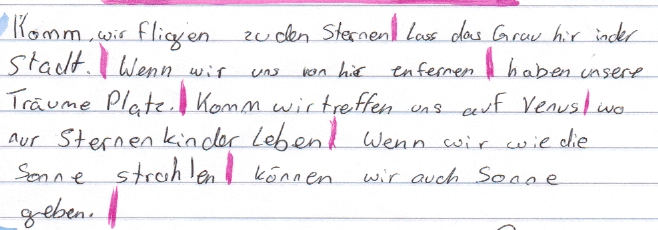 Komm, wir fliegen zu den Sternen| lass das Grau hir inder
Stadt.| Wenn wir uns von hir enfernen | haben unsere
Träume Platz.| Komm wir treffen uns auf Venus| wo
nur Sternenkinder Leben| Wenn wir wie die
Sonne strahlen| können wir auch Sonne
geben. |